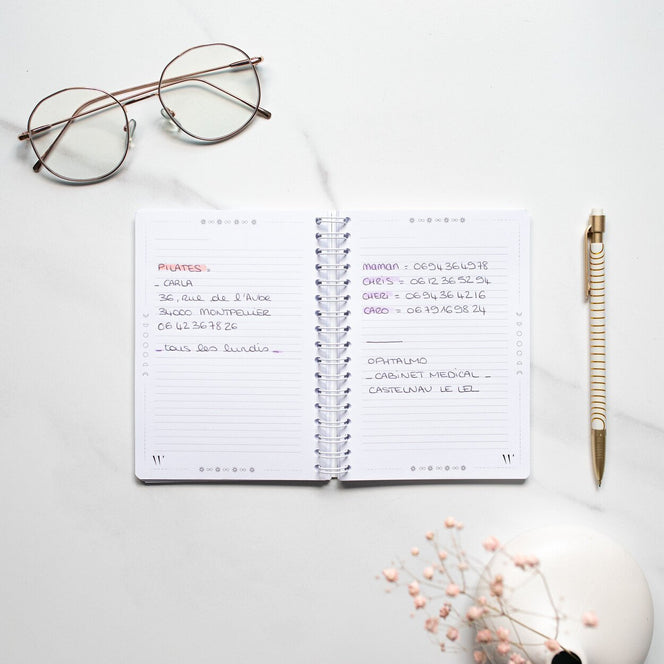 PILATES.
- CARLA
36, Rue de l'Aube
34000 MONTPELLIER
06 42 36 78 26
- tous les lundis -
W
maman = 0694364978
CHRIS = 0612365294
CHERI = 0694364216
CARO = 0679169824
OPHTALMO
- CABINET MEDICAL -
CASTELNAU LE LEZ
W